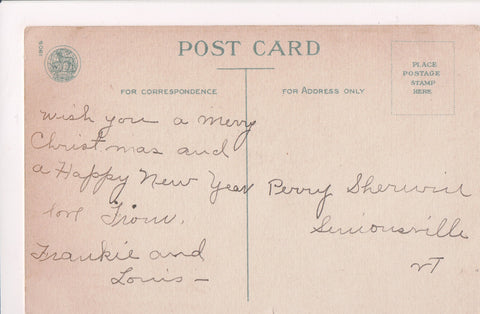 1908
POST CARD
PLACE
POSTAGE
STAMP
HERE
FOR CORRESPONDENCE
FOR ADDRESS ONLY
Wish you a merry
Christmas and
a Happy New Year
love From,
Frankie and
Louis –
Perry Sherwin
Simonsville
VT